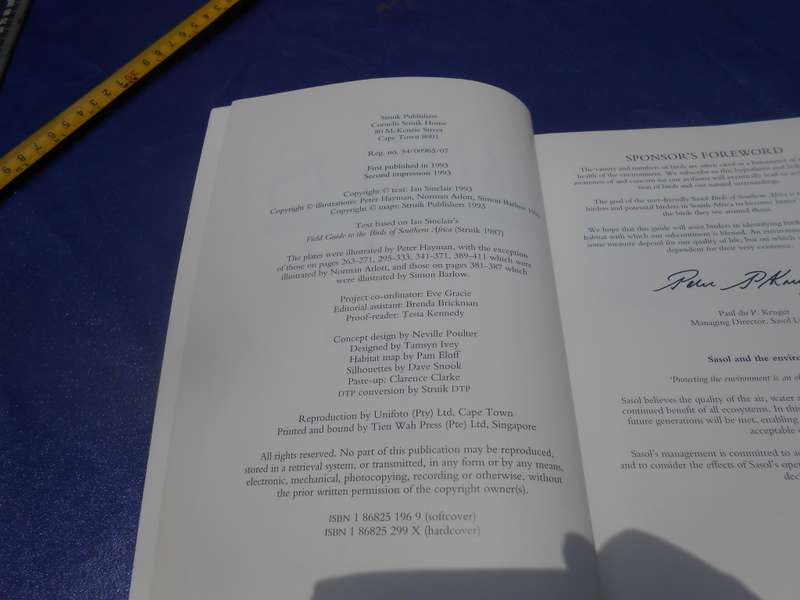 Struik Publishers
Cornelis Struik House
80 McKenzie Street
Cape Town 8001
Reg. no. 54/00965/07
First published in 1993
Second impression 1993
Copyright © text: Ian Sinclair 1993
Copyright © illustrations: Peter Hayman, Norman Arlott, Simon Barlow 1993
Copyright © maps: Struik Publishers 1993
Text based on Ian Sinclair's
Field Guide to the Birds of Southern Africa (Struik 1987)
The plates were illustrated by Peter Hayman, with the exception
of those on pages 263-271, 295-333, 341-371, 389-411 which were
illustrated by Norman Arlott, and those on pages 381-387 which
were illustrated by Simon Barlow.
Project co-ordinator: Eve Gracie
Editorial assistant: Brenda Brickman
Proof-reader: Tessa Kennedy
Concept design by Neville Poulter
Designed by Tamsyn Ivey
Habitat map by Pam Eloff
Silhouettes by Dave Snook
Paste-up: Clarence Clarke
DTP conversion by Struik DTP
Reproduction by Unifoto (Pty) Ltd, Cape Town
Printed and bound by Tien Wah Press (Pte) Ltd, Singapore
All rights reserved. No part of this publication may be reproduced,
stored in a retrieval system, or transmitted, in any form or by any means,
electronic, mechanical, photocopying, recording or otherwise, without
the prior written permission of the copyright owner(s).
ISBN 1 86825 196 9 (softcover)
ISBN 1 86825 299 X (hardcover)
SPONSOR'S FOREWORD
The variety and numbers of birds are often cited as a barometer of
health of the environment. We subscribe to this hypothesis and
awareness of and concern for our avifauna will eventually lead to
tion of birds and our natural surroundings.
The goal of the user-friendly Sasol Birds of Southern Africa is
birders and potential birders in South Africa to become better
the birds they see around them.
We hope that this guide will assist birders in identifying
habitat with which our subcontinent is blessed. An environment
some measure depend for our quality of life, but on which
dependent for their very existence.
Paul du P. Kruger
Managing Director, Sasol
Sasol and the
'Protecting the environment is an
Sasol believes the quality of the air, water
continued benefit of all ecosystems. In
future generations will be met, enabling
acceptable
Sasol's management is committed to
and to consider the effects of Sasol's